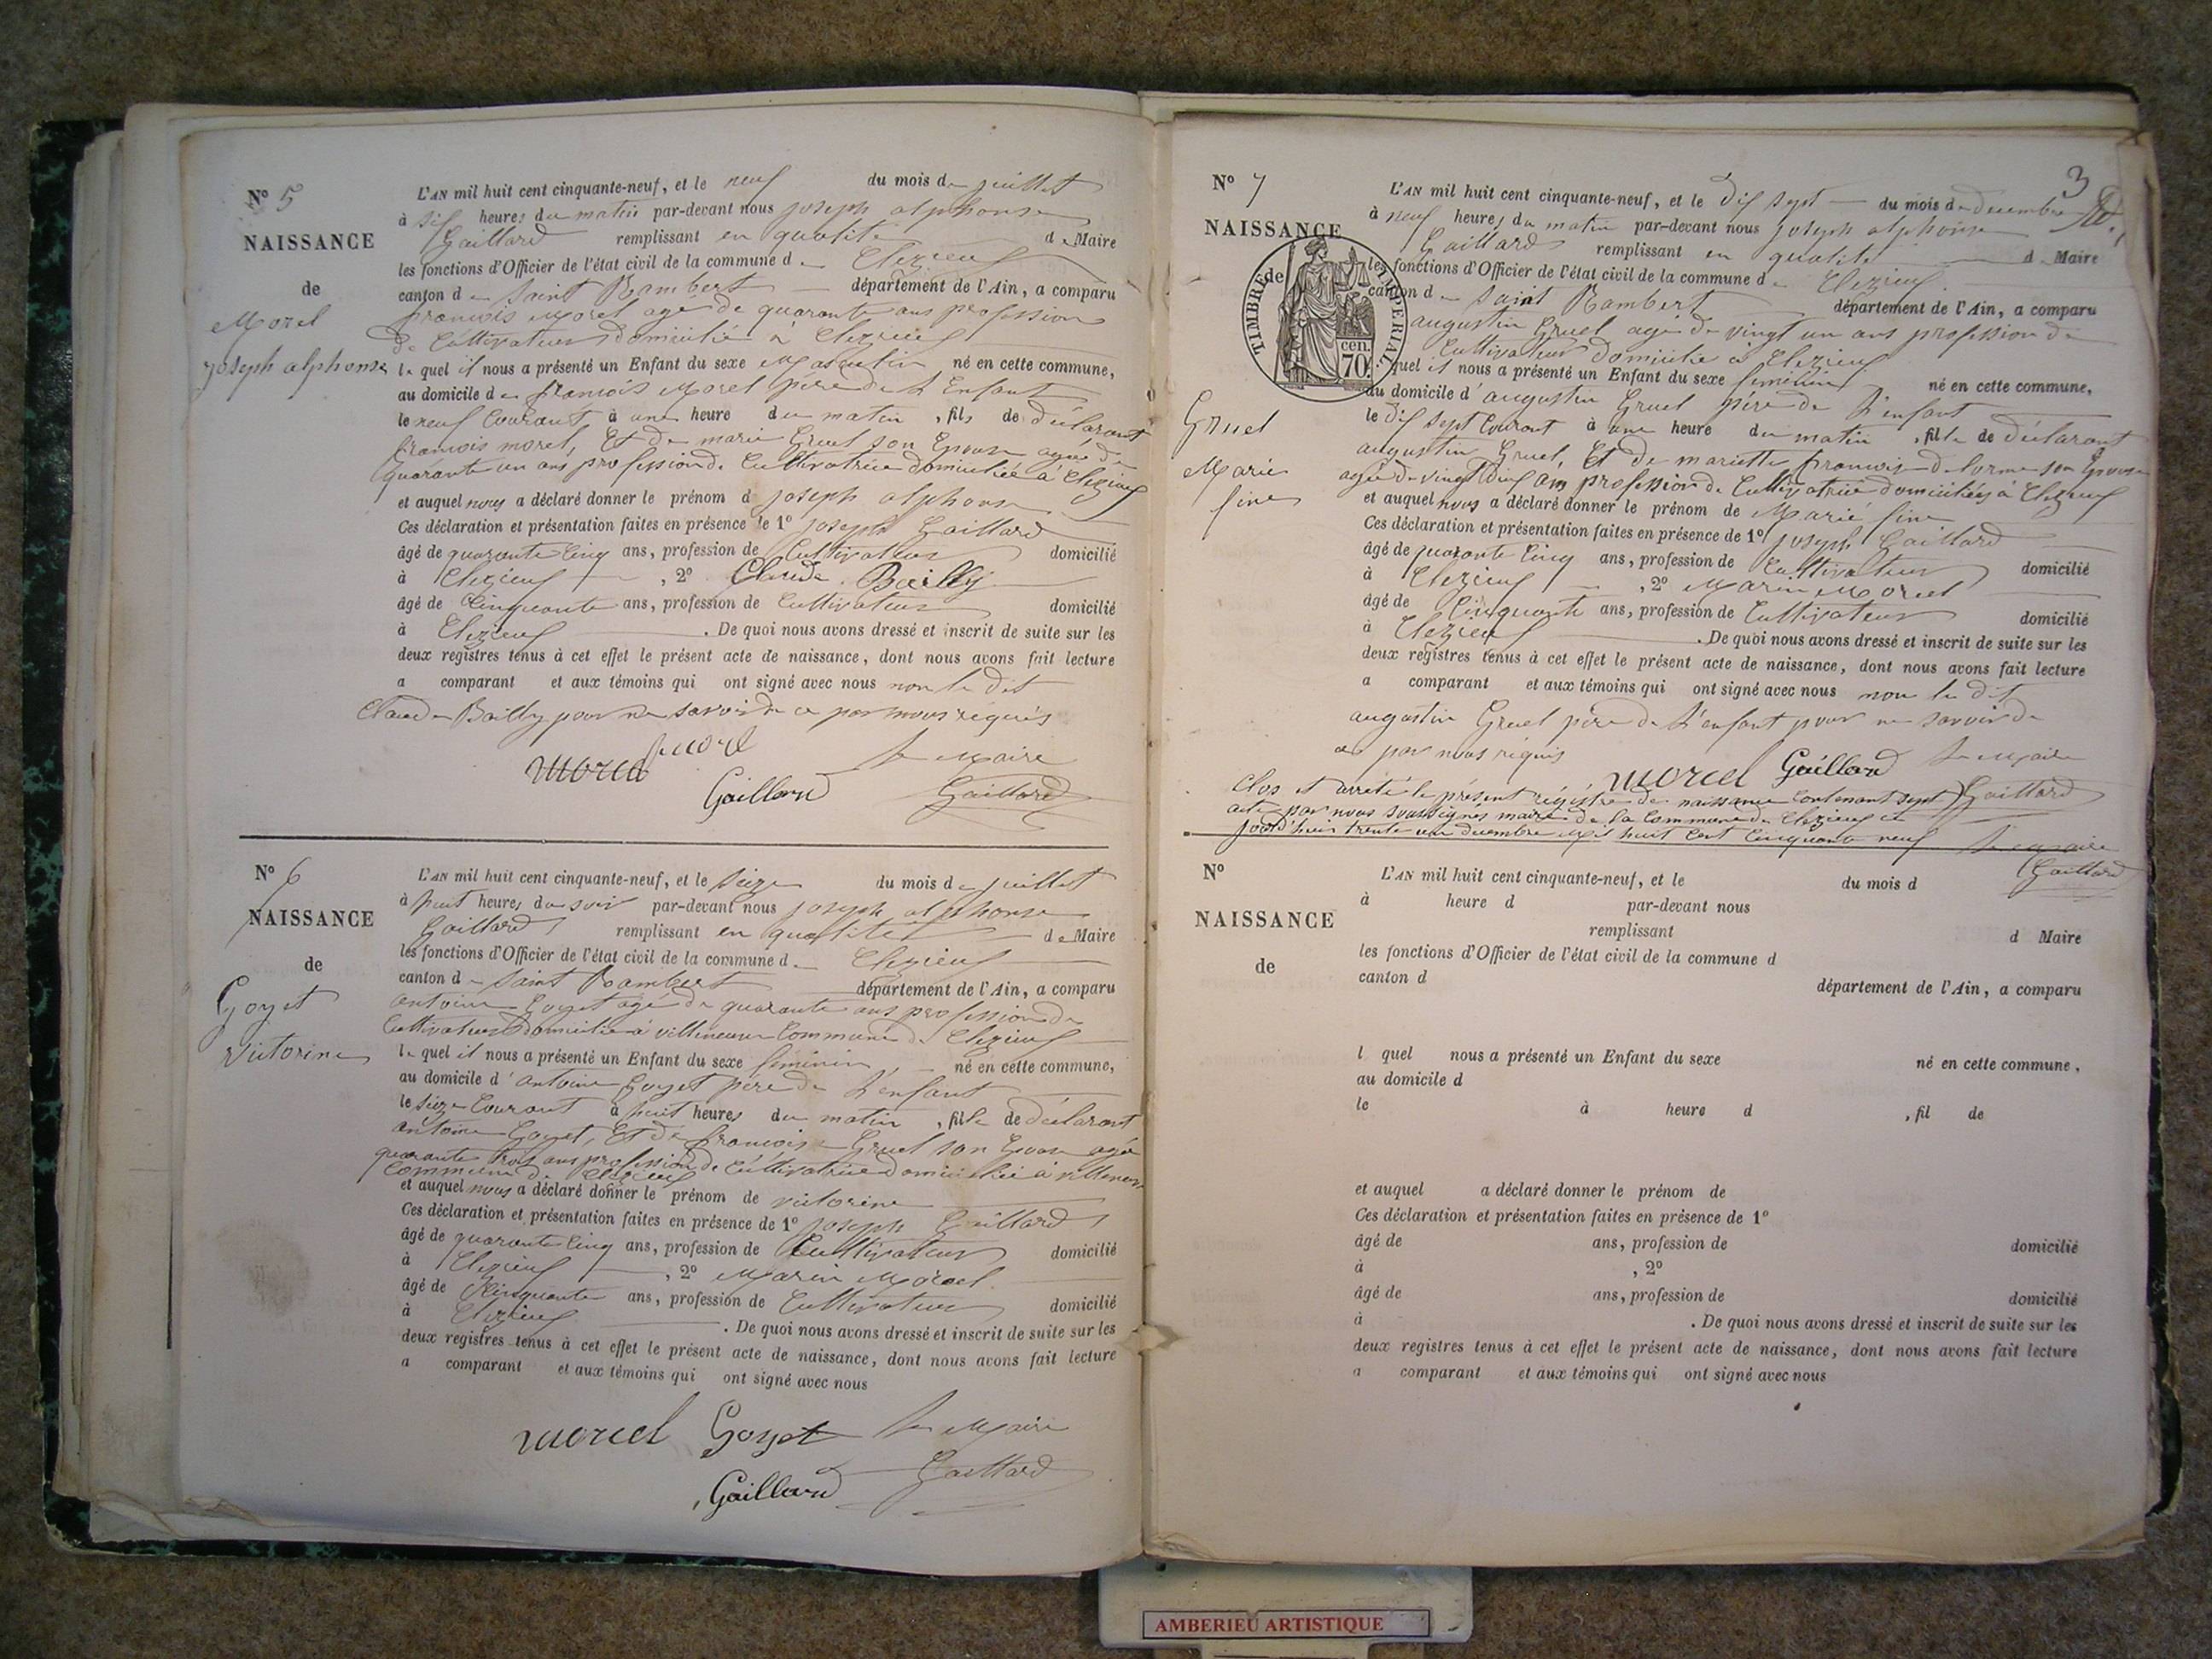 N° 5
NAISSANCE
de
Morel
joseph alphonse
L'AN mil huit cent cinquante-neuf, et le neuf du mois de juillet
à six heures du matin par-devant nous joseph alphonse
Gaillard remplissant en qualité de Maire
les fonctions d'Officier de l'état civil de la commune de Clezieu
canton de Saint Rambert département de l'Ain, a comparu
francois Morel agé de quarante ans profession
de Cultivateur domicilié à Clezieu
le quel il nous a présenté un Enfant du sexe Masculin né en cette commune,
au domicile de francois Morel père de l'Enfant
le neuf Courant à une heure du matin, fils de déclarant
francois morel, Et de marie Gruel son Epouse agée de
quarante un ans profession de Cultivatrice domiciliée à Clezieu
et auquel nous a déclaré donner le prénom d joseph alphonse
Ces déclaration et présentation faites en présence de 1° joseph Gaillard
âgé de quarante cinq ans, profession de Cultivateur domicilié
à Clezieu, 2° Claude Bailly
âgé de Cinquante ans, profession de Cultivateur domicilié
à Clezieu. De quoi nous avons dressé et inscrit de suite sur les
deux registres tenus à cet effet le présent acte de naissance, dont nous avons fait lecture
a comparant et aux témoins qui ont signé avec nous non le dit
Claude Bailly pour ne savoir de ce par nous requis
morel
Gaillard
le Maire
Gaillard
N° 6
NAISSANCE
de
Goyet
Victorine
L'AN mil huit cent cinquante-neuf, et le Seize du mois de juillet
à huit heures du soir par-devant nous joseph alphonse
Gaillard remplissant en qualité de Maire
les fonctions d'Officier de l'état civil de la commune de Clezieu
canton de Saint Rambert département de l'Ain, a comparu
antoine Goyet agé de quarante ans profession de
Cultivateur domicilié à villeneuve Commune de Clezieu
le quel il nous a présenté un Enfant du sexe féminin, né en cette commune,
au domicile d'antoine Goyet père de l'enfant
le Seize Courant à huit heures du matin, fille de déclarant
antoine Goyet, Et de francoise Gruel son Epouse agée
quarante trois ans profession de Cultivatrice domiciliée à villeneuve
Commune de Clezieu
et auquel nous a déclaré donner le prénom de victorine
Ces déclaration et présentation faites en présence de 1° joseph Gaillard
âgé de quarante cinq ans, profession de Cultivateur domicilié
à Clezieu, 2° Marin Morcel
âgé de Cinquante ans, profession de Cultivateur domicilié
à Clezieu. De quoi nous avons dressé et inscrit de suite sur les
deux registres tenus à cet effet le présent acte de naissance, dont nous avons fait lecture
a comparant et aux témoins qui ont signé avec nous
morcel Goyet le Maire
Gaillard Gaillard
3
N° 7
NAISSANCE
de
TIMBRE IMPERIAL
70 cen.
Gruel
Marie
fine
L'AN mil huit cent cinquante-neuf, et le Dix sept du mois de decembre
à neuf heures du matin par-devant nous joseph alphonse
Gaillard remplissant en qualité d Maire
les fonctions d'Officier de l'état civil de la commune de Clezieu
canton de Saint Rambert département de l'Ain, a comparu
augustin Gruel agé de vingt un ans profession de
Cultivateur domicilié à Clezieu
quel il nous a présenté un Enfant du sexe feminin né en cette commune,
au domicile d'augustin Gruel père de l'enfant
le Dix sept Courant à une heure du matin, fille de déclarant
augustin Gruel, Et de mariette francoise delorme son Epouse
agée de vingt dix ans profession de Cultivatrice domiciliés à Clezieu
et auquel nous a déclaré donner le prénom de Marie fine
Ces déclaration et présentation faites en présence de 1° joseph Gaillard
âgé de quarante cinq ans, profession de Cultivateur domicilié
à Clezieu, 2° Marin Morcel
âgé de Cinquante ans, profession de Cultivateur domicilié
à Clezieu. De quoi nous avons dressé et inscrit de suite sur les
deux registres tenus à cet effet le présent acte de naissance, dont nous avons fait lecture
a comparant et aux témoins qui ont signé avec nous non le dit
augustin Gruel père de l'enfant pour ne savoir de
ce par nous requis
morcel Gaillard le Maire
Gaillard
Clos et arreté le présent régistre de naissance Contenant sept
acte par nous soussignés maire de la Commune de Clezieu ce
jourd'hui trente un decembre Mil huit Cent Cinquante neuf le Maire
Gaillard
N°
NAISSANCE
de
L'AN mil huit cent cinquante-neuf, et le du mois d
à heure d par-devant nous
remplissant d Maire
les fonctions d'Officier de l'état civil de la commune d
canton d département de l'Ain, a comparu
l quel nous a présenté un Enfant du sexe né en cette commune,
au domicile d
le à heure d , fil de
et auquel a déclaré donner le prénom de
Ces déclaration et présentation faites en présence de 1°
âgé de ans, profession de domicilié
à , 2°
âgé de ans, profession de domicilié
à . De quoi nous avons dressé et inscrit de suite sur les
deux registres tenus à cet effet le présent acte de naissance, dont nous avons fait lecture
a comparant et aux témoins qui ont signé avec nous
AMBERIEU ARTISTIQUE